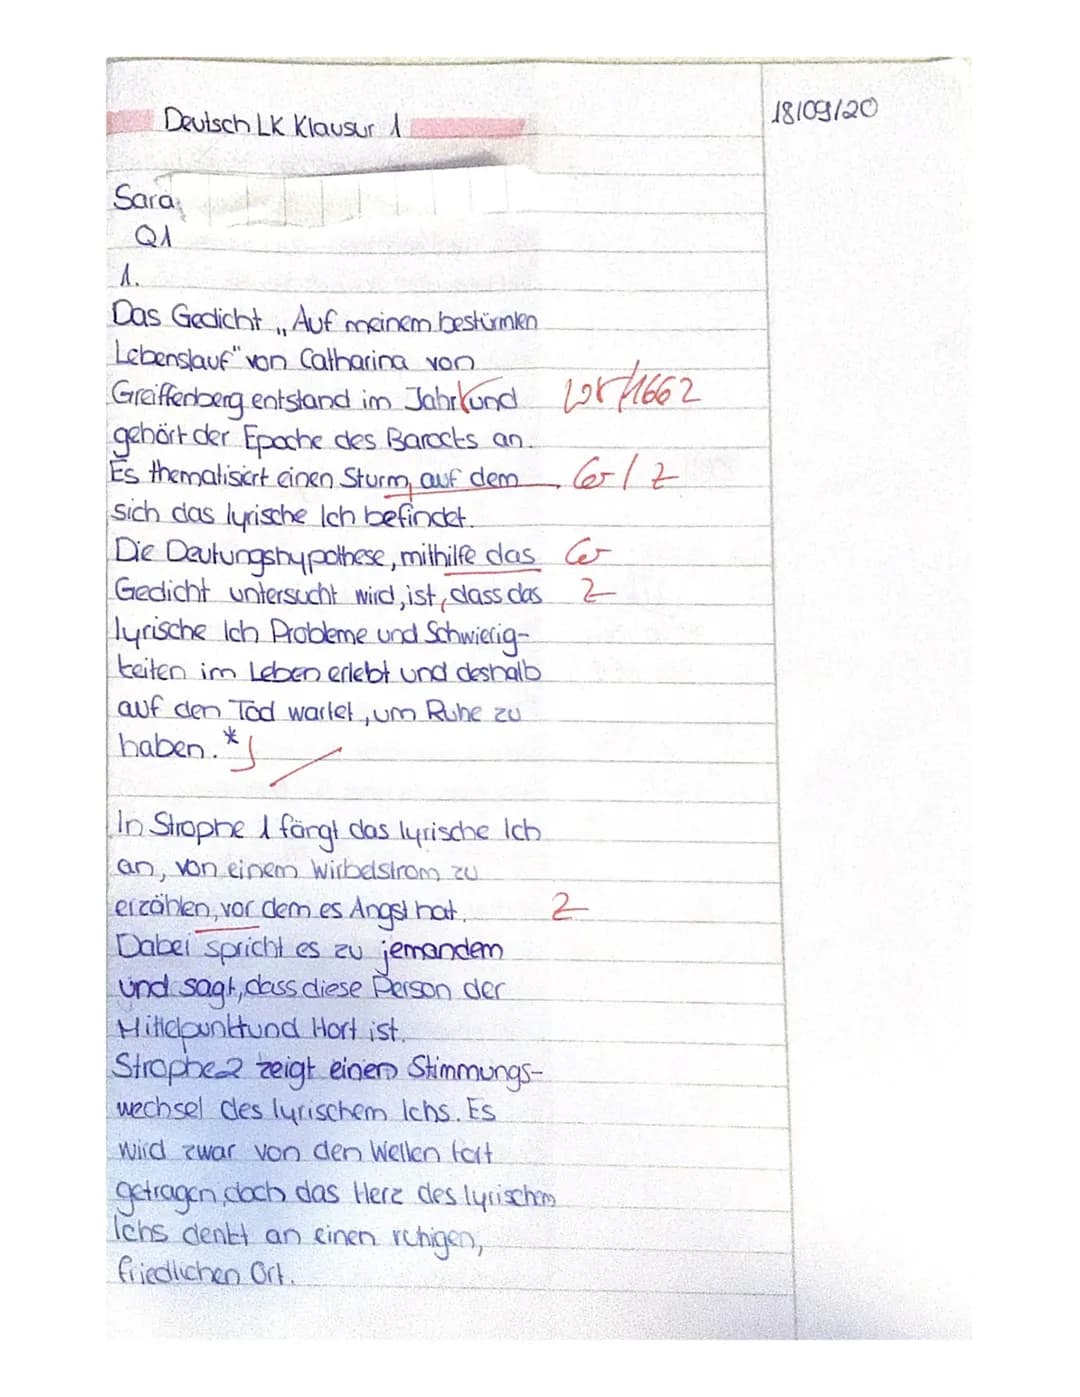 Deutsch LK Klausur 1
18/09/20
Sara
Q1
1.
Das Gedicht „Auf meinem bestürmten
Lebenslauf" von Catharina von
Greiffenberg entstand im Jahr und
vor 1662
gehört der Epoche des Barocks an.
Es thematisiert einen Sturm, auf dem
Gr / Z
sich das lyrische Ich befindet.
Die Deutungshypothese, mithilfe das
Gr
Gedicht untersucht wird, ist, dass das
Z
lyrische Ich Probleme und Schwierig-
keiten im Leben erlebt und deshalb
auf den Tod wartet, um Ruhe zu
haben.*
In Strophe 1 fängt das lyrische Ich
an, von einem Wirbelstrom zu
erzählen, vor dem es Angst hat.
Z
Dabei spricht es zu jemandem
und sagt, dass diese Person der
Mittelpunkt und Hort ist.
Strophe 2 zeigt einen Stimmungs-
wechsel des lyrischem Ichs. Es
wird zwar von den Wellen fort
getragen, doch das Herz des lyrischen
Ichs denkt an einen ruhigen,
friedlichen Ort.